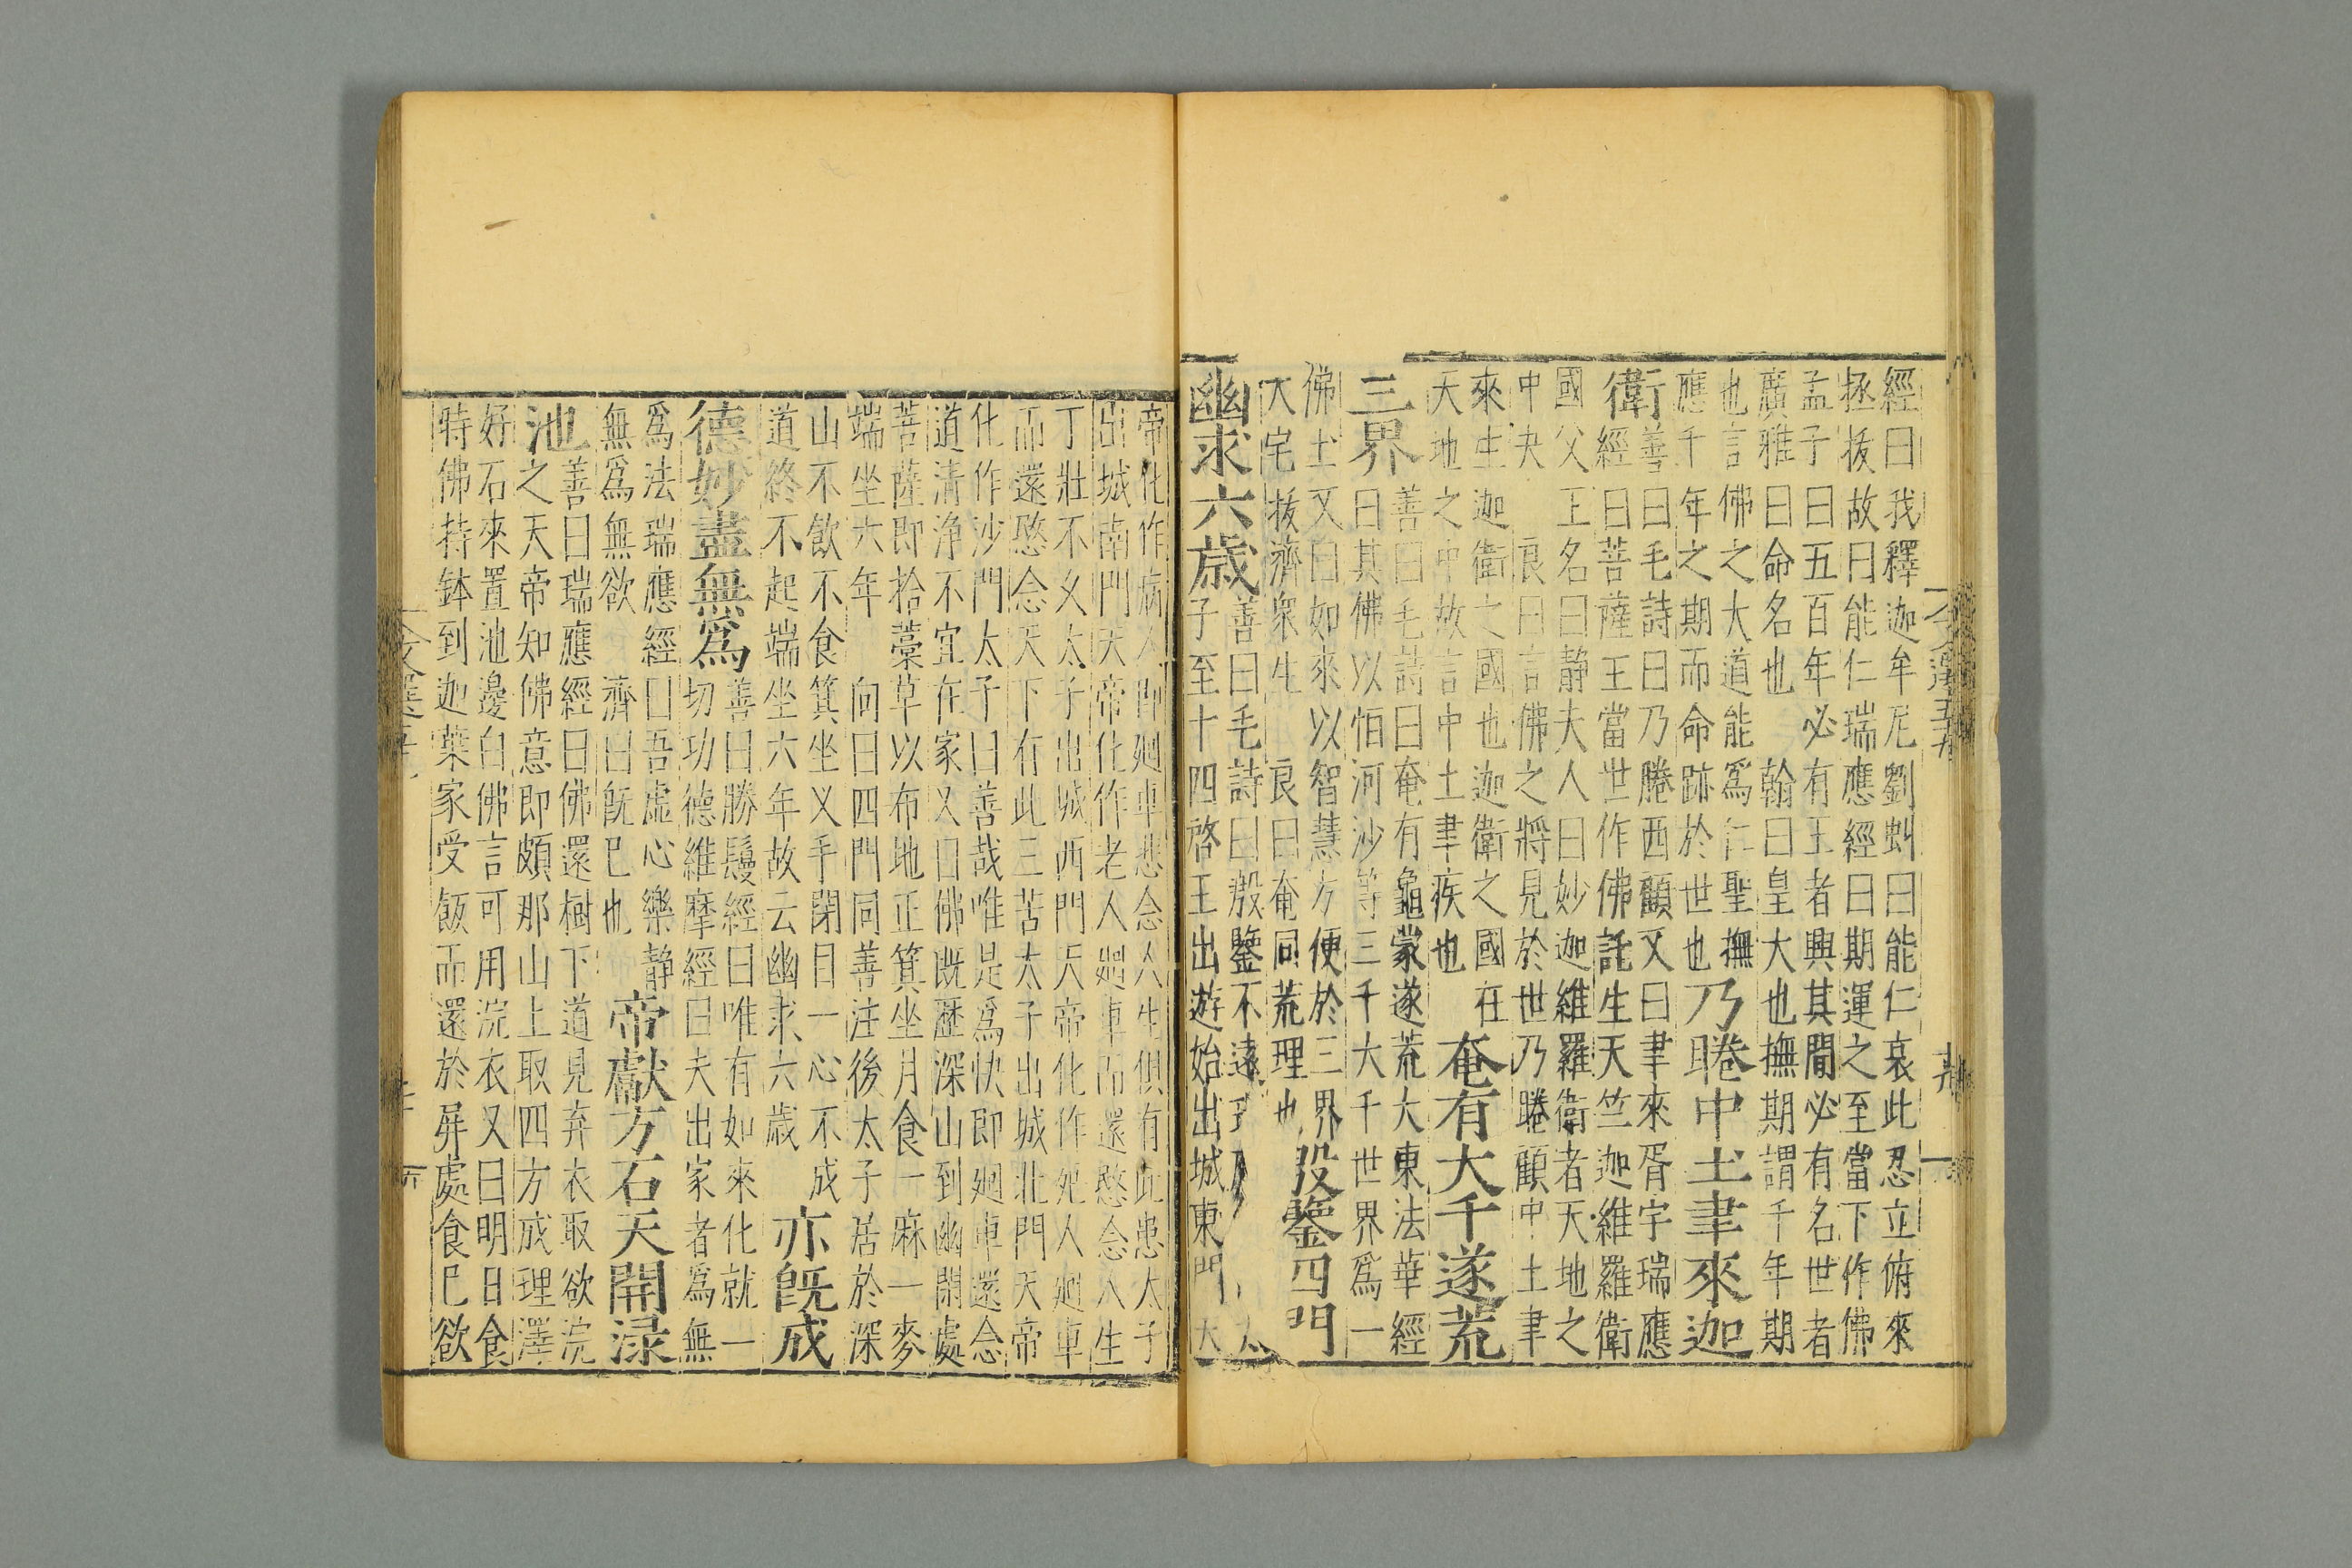 經曰我釋迦牟尼劉虯曰能仁哀此忍立俯來
拯拔故曰能仁瑞應經曰期運之至當下作佛
孟子曰五百年必有王者興其間必有名世者
廣雅曰命名也 翰曰皇大也撫期謂千年期
也言佛之大道能爲仁聖撫
應千年之期而命跡於世也
乃睠中土聿來迦
衛
善曰毛詩曰乃睠西顧又曰聿來胥宇瑞應
經曰菩薩王當世作佛託生天竺迦維羅衛
國父王名曰靜夫人曰妙迦維羅衛者天地之
中央 良曰言佛之將見於世乃睠顧中土聿
來生迦衛之國也迦衛之國在
天地之中故言中土聿疾也
奄有大千遂荒
三界
善曰毛詩曰奄有龜蒙遂荒大東法華經
曰其佛以恒河沙等三千大千世界爲一
佛土又曰如來以智慧方便於三界
大宅拔濟衆生 良曰奄同荒理也
殷鑒四門
幽求六歲
善曰毛詩曰殷鑒不遠
子至十四啓王出遊始出城東門天
帝化作病人即廻車悲念人生俱有此患太子
出城南門天帝化作老人廻車而還愍念人生
丁壯不乆太子出城西門天帝化作死人廻車
而還愍念天下有此三苦太子出城北門天帝
化作沙門太子曰善哉唯是爲快即廻車還念
道清淨不宜在家又曰佛既歷深山到幽閑處
菩薩即拾藁草以布地正箕坐月食一麻一麥
端坐六年 向曰四門同善注後太子居於深
山不飲不食箕坐叉手閉目一心不成
道終不起端坐六年故云幽求六歲
亦旣成
德妙盡無爲
善曰勝鬘經曰唯有如來化就一
切功德維摩經曰夫出家者爲無
爲法瑞應經曰吾虛心樂靜
無爲無欲 濟曰旣已也
帝獻方石天開淥
池
善曰瑞應經曰佛還樹下道見弃衣取欲浣
之天帝知佛意即頗那山上取四方成理澤
好石來置池邊白佛言可用浣衣又曰明日食
時佛持鉢到迦葉家受飯而還於屏處食已欲